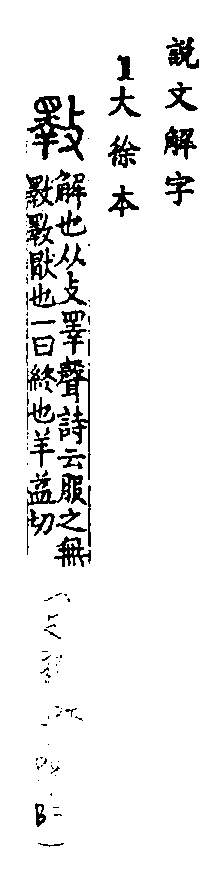 説文解字
1大徐本
斁
解也从攴睪聲詩云服之無
斁斁猒也一曰終也羊益切